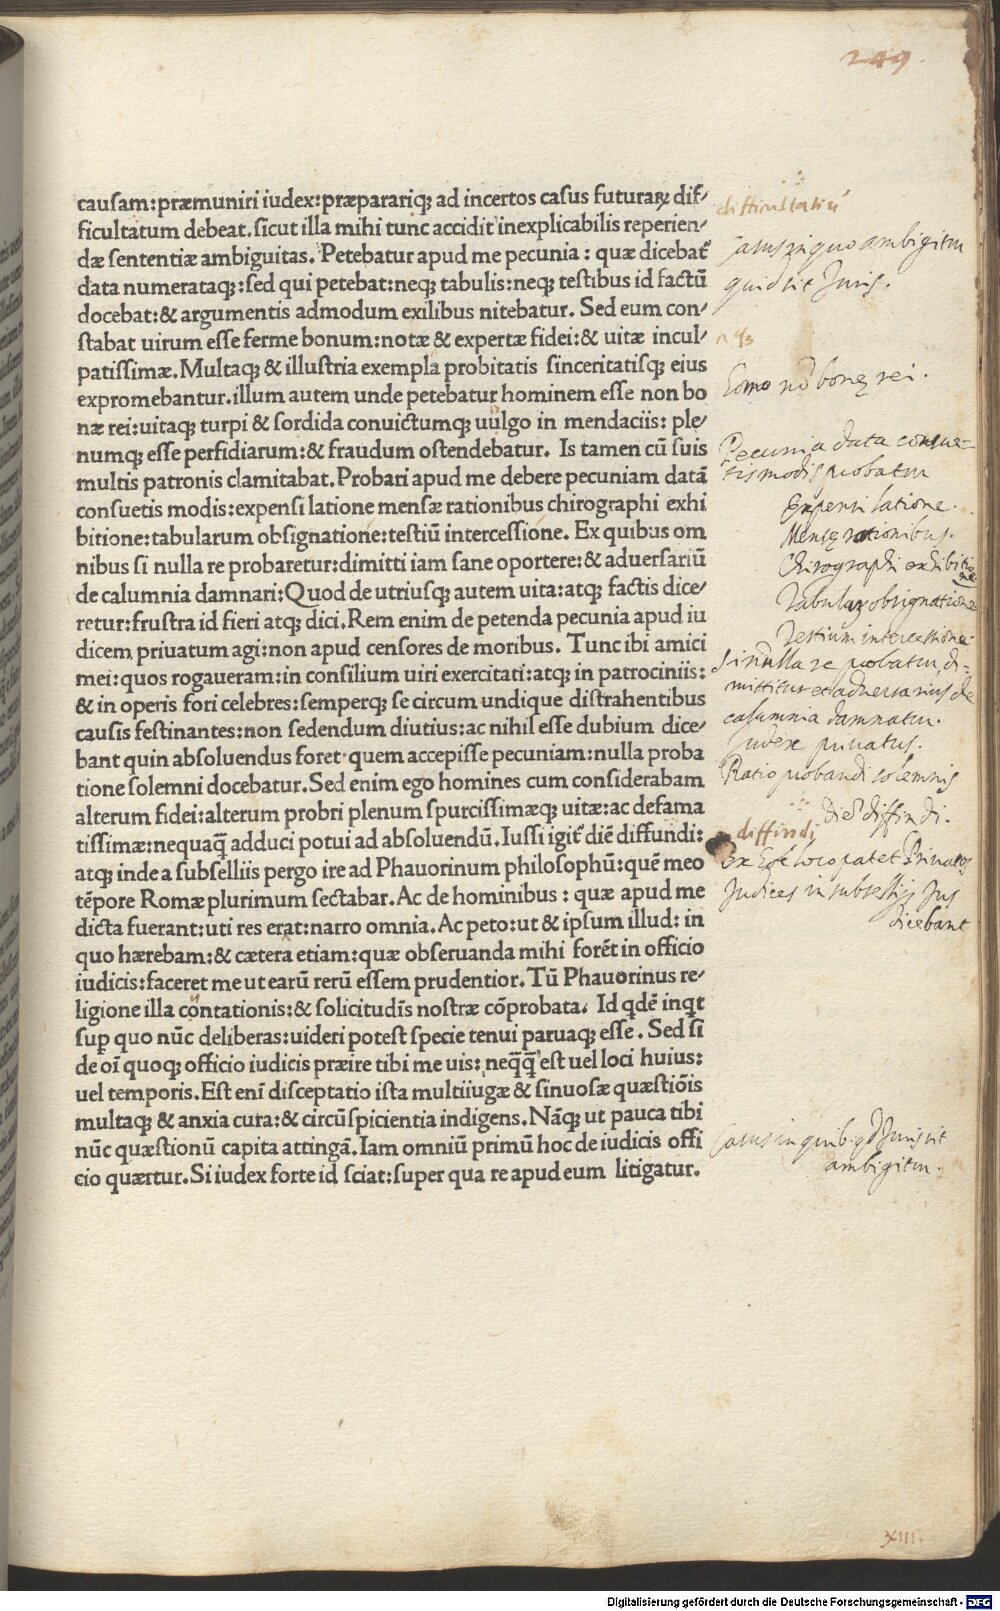 249.
causam:præmuniri iudex:præparariqꝫ ad incertos casus futuraꝝ dif⸗
ficultatum debeat. sicut illa mihi tunc accidit inexplicabilis reperien⸗
dæ sententiæ ambiguitas. Petebatur apud me pecunia : quæ dicebat᷑
data numerataqꝫ:sed qui petebat:neqꝫ tabulis:neqꝫ testibus id factū
docebat:& argumentis admodum exilibus nitebatur. Sed eum con⸗
stabat uirum esse ferme bonum:notæ & expertæ fidei:& uitæ incul⸗
patissimæ. Multaqꝫ & illustria exempla probitatis sinceritatisqꝫ eius
expromebantur. illum autem unde petebatur hominem esse non bo
næ rei:uitaqꝫ turpi & sordida conuictumqꝫ uulgo in mendaciis: ple⸗
numqꝫ esse perfidiarum:& fraudum ostendebatur. Is tamen cū suis
multis patronis clamitabat. Probari apud me debere pecuniam datā
consuetis modis:expensi latione mensæ rationibus chirographi exhi
bitione:tabularum obsignatione:testiū intercessione. Ex quibus om
nibus si nulla re probaretur:dimitti iam sane oportere:& aduersariū
de calumnia damnari: Quod de utriusqꝫ autem uita:atqꝫ factis dice⸗
retur:frustra id fieri atqꝫ dici. Rem enim de petenda pecunia apud iu
dicem priuatum agi:non apud censores de moribus. Tunc ibi amici
mei:quos rogaueram:in consilium uiri exercitati:atqꝫ in patrociniis:
& in operis fori celebres:semperqꝫ se circum undique distrahentibus
causis festinantes:non sedendum diutius:ac nihil esse dubium dice⸗
bant quin absoluendus foret·quem accepisse pecuniam:nulla proba
tione solemni docebatur. Sed enim ego homines cum considerabam
alterum fidei:alterum probri plenum spurcissimæqꝫ uitæ:ac defama
tissimæ:nequaq̄ adduci potui ad absoluendū. Iussi igit᷑ diē diffundi:
atqꝫ inde a subselliis pergo ire ad Phauorinum philosophū:quē meo
tēpore Romæ plurimum sectabar. Ac de hominibus : quæ apud me
dicta fuerant:uti res erat:narro omnia. Ac peto:ut & ipsum illud: in
quo hærebam:& cætera etiam:quæ obseruanda mihi forēt in officio
iudicis:faceret me ut earū rerū essem prudentior. Tū Phauorinus re⸗
ligione illa contationis:& solicitudīs nostræ cōprobata. Id qdē inqt
suꝑ quo nūc deliberas:uideri potest specie tenui paruaqꝫ esse. Sed si
de oī quoqꝫ officio iudicis præire tibi me uis: neq̄q̄ est uel loci huius:
uel temporis. Est enī disceptatio ista multiiugæ & sinuosæ quæstiōis
multaqꝫ & anxia cura:& circūspicientia indigens. Nāqꝫ ut pauca tibi
nūc quæstionū capita attingā. Iam omniū primū hoc de iudicis offi
cio quærtur. Si iudex forte id sciat:super qua re apud eum litigatur.
difficultatū
casus in quo ambigitur
quid sit Juris.
Homo nō bonę rei.
Pecunia data consue-
tis modis probatur
Expensi latione.
Mensę rationibus.
Chirographi exhibitione
Tabulaꝝ obsignatione
Testium intercessione.
Si nulla re probatur, di-
mittitur et adversarius de
calumnia damnatur.
Judex privatus.
Ratio probandi solemnis
Diē diffindi.
diffindi
Ex Hoc loco patet Privatos
Judices in subsellijs Jus
dicebant
Casus in quib. quid Juris sit
ambigitur.
XIII.
Digitalisierung gefördert durch die Deutsche Forschungsgemeinschaft - DFG